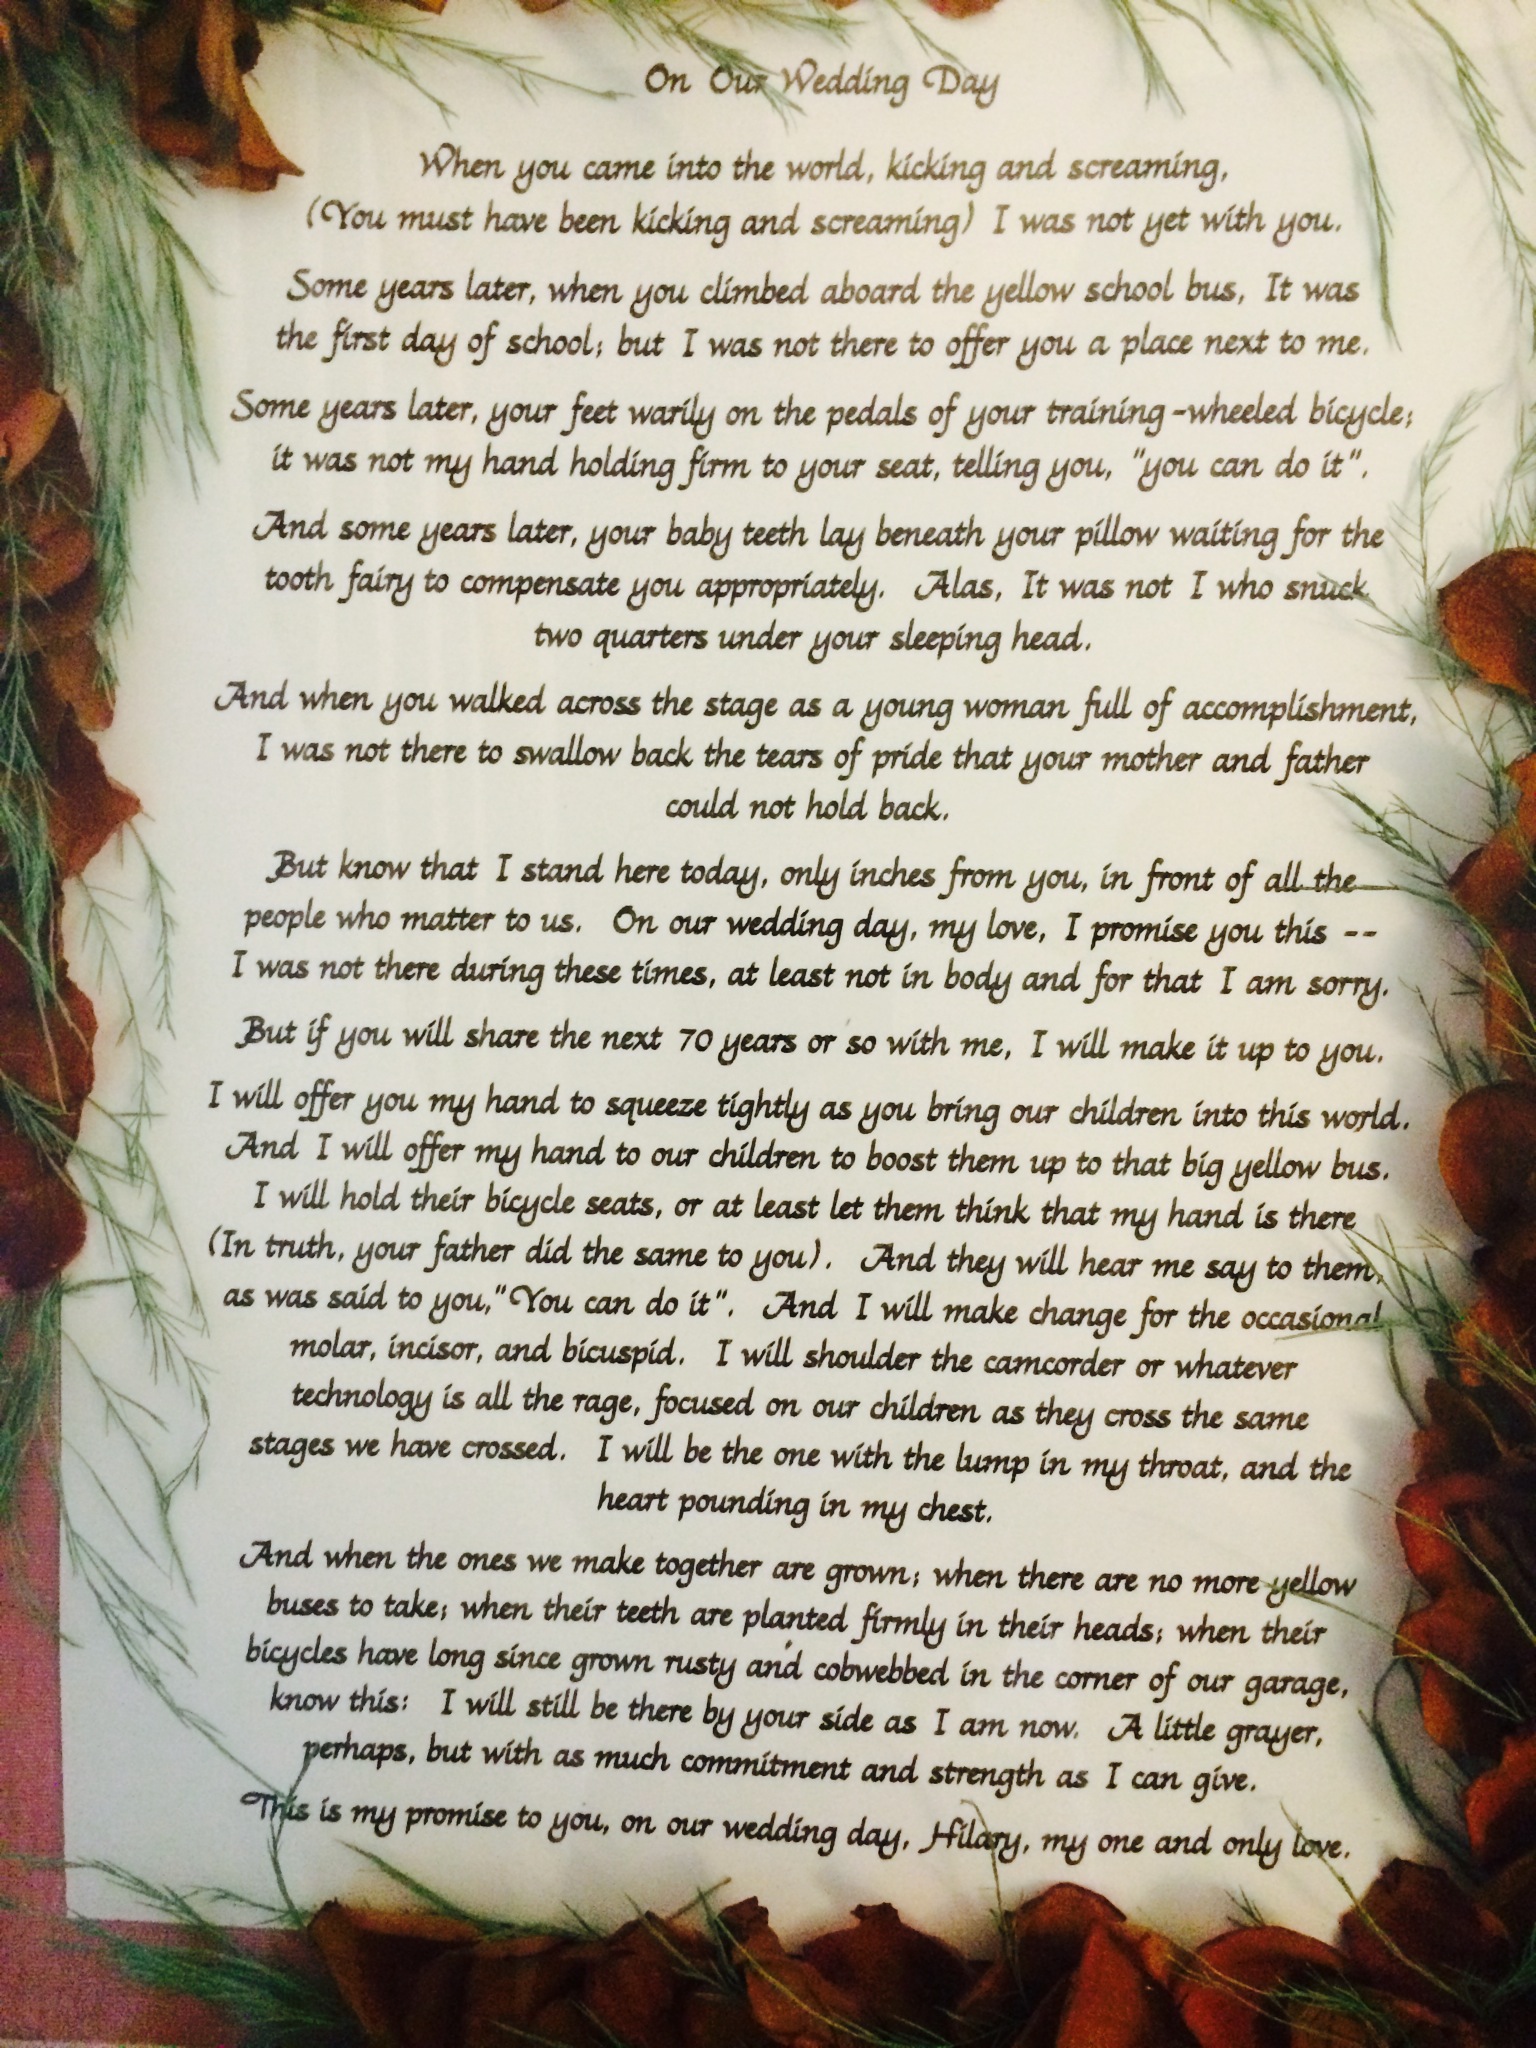 On Our Wedding Day
When you came into the world, kicking and screaming,
(You must have been kicking and screaming) I was not yet with you.
Some years later, when you climbed aboard the yellow school bus, It was
the first day of school; but I was not there to offer you a place next to me.
Some years later, your feet warily on the pedals of your training-wheeled bicycle;
it was not my hand holding firm to your seat, telling you, "you can do it".
And some years later, your baby teeth lay beneath your pillow waiting for the
tooth fairy to compensate you appropriately. Alas, It was not I who snuck
two quarters under your sleeping head.
And when you walked across the stage as a young woman full of accomplishment,
I was not there to swallow back the tears of pride that your mother and father
could not hold back.
But know that I stand here today, only inches from you, in front of all the
people who matter to us. On our wedding day, my love, I promise you this --
I was not there during these times, at least not in body and for that I am sorry.
But if you will share the next 70 years or so with me, I will make it up to you.
I will offer you my hand to squeeze tightly as you bring our children into this world.
And I will offer my hand to our children to boost them up to that big yellow bus.
I will hold their bicycle seats, or at least let them think that my hand is there
(In truth, your father did the same to you). And they will hear me say to them,
as was said to you,"You can do it". And I will make change for the occasional
molar, incisor, and bicuspid. I will shoulder the camcorder or whatever
technology is all the rage, focused on our children as they cross the same
stages we have crossed. I will be the one with the lump in my throat, and the
heart pounding in my chest.
And when the ones we make together are grown; when there are no more yellow
buses to take; when their teeth are planted firmly in their heads; when their
bicycles have long since grown rusty and cobwebbed in the corner of our garage,
know this: I will still be there by your side as I am now. A little grayer,
perhaps, but with as much commitment and strength as I can give.
This is my promise to you, on our wedding day, Hilary, my one and only love.